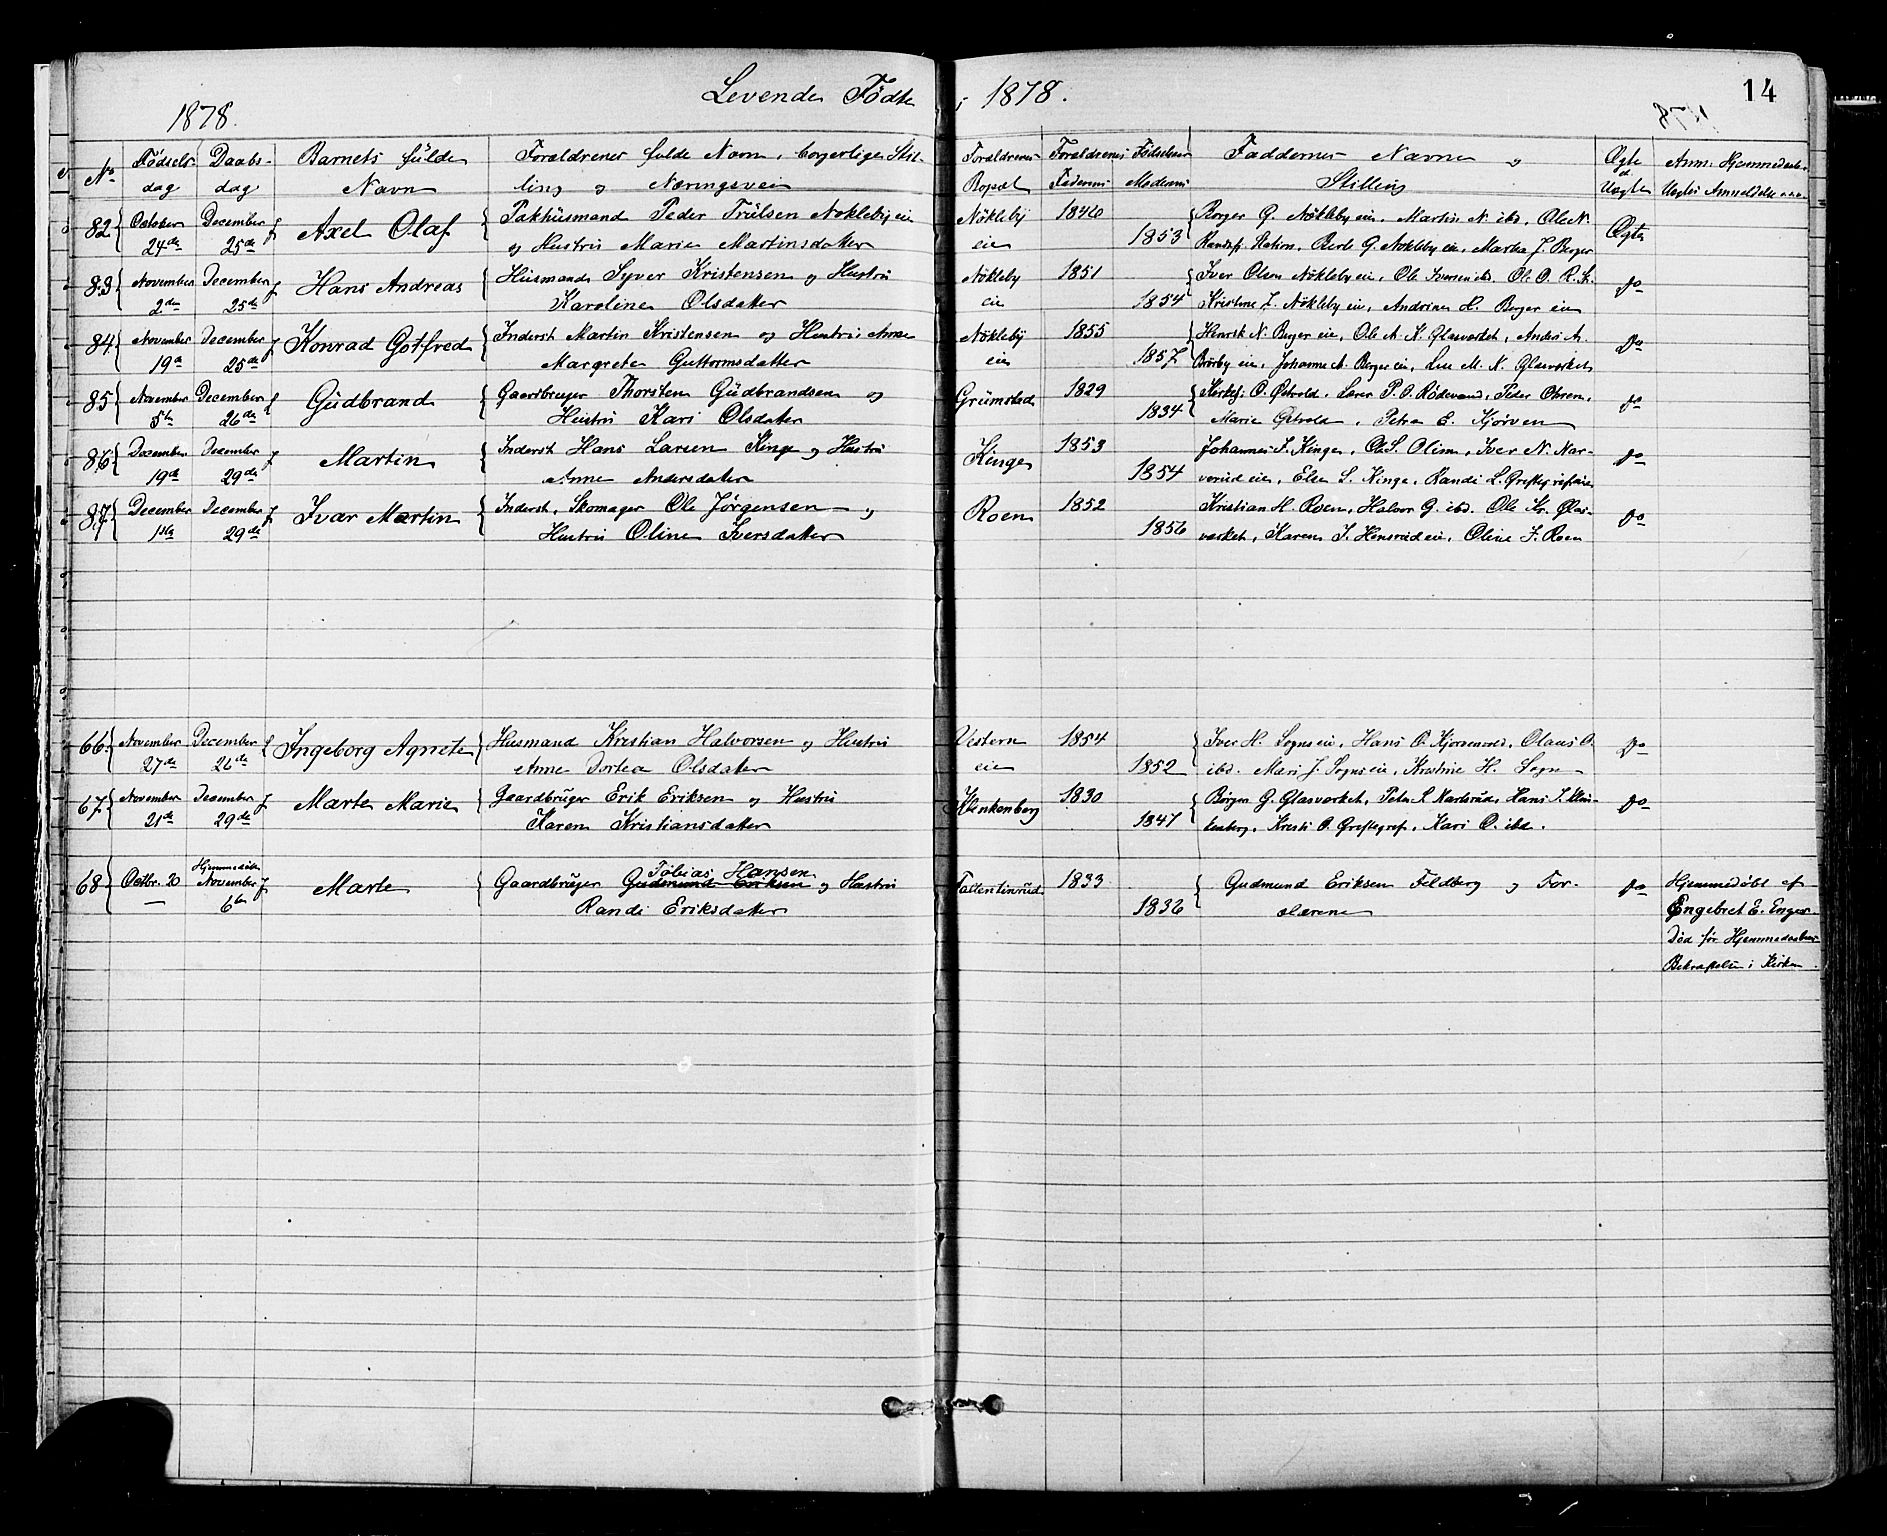 Levende Fødte i 1878.
14
1878.
No Fødsels- Daabs- Barnets fulde Forældrenes fulde Navn, borgerlige Stil- Forældrenes Forældrenes Fødselsaar Faddernes Navne og Ægte Anm. Hjemmedaab.
dag dag Navn ling og Næringsvei Bopæl Faderens Moderens Stilling el Uægte Uægtes Anmeldelse
82 October December Axel Olaf Pakhusmand Peder Trulsen Nøkleby eie Nøkleby 1846 Borger G. Nøkleby eie, Martin N. ibd, Ole N. Ægte
24de 25de og Hustru Marie Martinsdatter eie 1853 Randsfj. Station, Berte G. Nøkleby eie, Marthe J. Berger
83 November December Hans Andreas Husmand Syver Kristensen og Hustru Nøkleby 1851 Iver Olsen Nøkleby eie, Ole Iversen ibd. Ol. O. R. St. do
2den 25de Karoline Olsdatter eie 1854 Kristine L. Nøkleby eie, Andrine H. Berger eie
84 November December Konrad Gotfred Inderst Martin Kristensen og Hustru Anne Nøkleby 1855 Henrik N. Berger eie, Ole A. K. Glasværket, Anders A. do
19de 25de Margrete Guttormsdatter eie 1857 Brørby eie, Johanne A. Berger eie, Lise M. N. Glasværket
85 November December Gudbrand Gaardbruger Thorsten Gudbrandsen og Grumstad 1829 Kirkesj. O. Østvold, Lærer P. O. Rødevand, Peder Ohren, do
5te 26de Hustru Kari Olsdatter 1834 Marie Østvold, Petra E. Kjørven
86 December December Martin Inderst Hans Larsen Kinge og Hustru Kinge 1853 Johannes L. Kinge, Ole S. Olim, Iver N. Nar- do
19de 29de Anne Andersdatter 1854 verud eie, Else L. Kinge, Randi L. Greftegrefseie
87 December December Ivar Martin Inderst, Skomager Ole Jørgensen og Roen 1852 Kristian H. Roen, Halvor G. ibd. Ole Kr. Glas- do
1ste 29de Hustru Oline Iversdatter 1856 værket, Karen I. Hensrud eie, Oline I. Roen
66 November December Ingeborg Agnete Husmand Kristian Halvorsen og Hustru Vestern 1854 Iver H. Sogns eie, Hans O. Olaus O. do
27de 26de Anne Dortea Olsdatter eie 1852 ibd. Mari J. Sogns eie, Kristine H. Sogn
67 November December Marte Marie Gaardbruger Erik Eriksen og Hustru Klinkenberg 1830 Børger G. Glasværket, Peter L. Karlsrud, Hans I. Klin- do
21de 29de Karen Kristiansdatter 1847 kenberg, Kristi O. Greftegref, Kari O. ibd.
68 Octbr. 20 Hjemmedøbt November Marte Gaardbruger Gudmund Eriksen Tobias Hansen og Hustru Tallentinrud 1833 Gudmund Eriksen Feldberg og For- do Hjemmedøbt af
6te Randi Eriksdatter 1836 ældrene Engebret E. Enger
Død før Hjemmedaabens
Bekræftelse i Kirken.